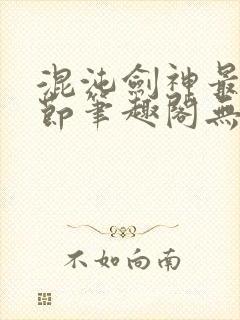 混沌劍神最
節筆趣閣無
不如向南